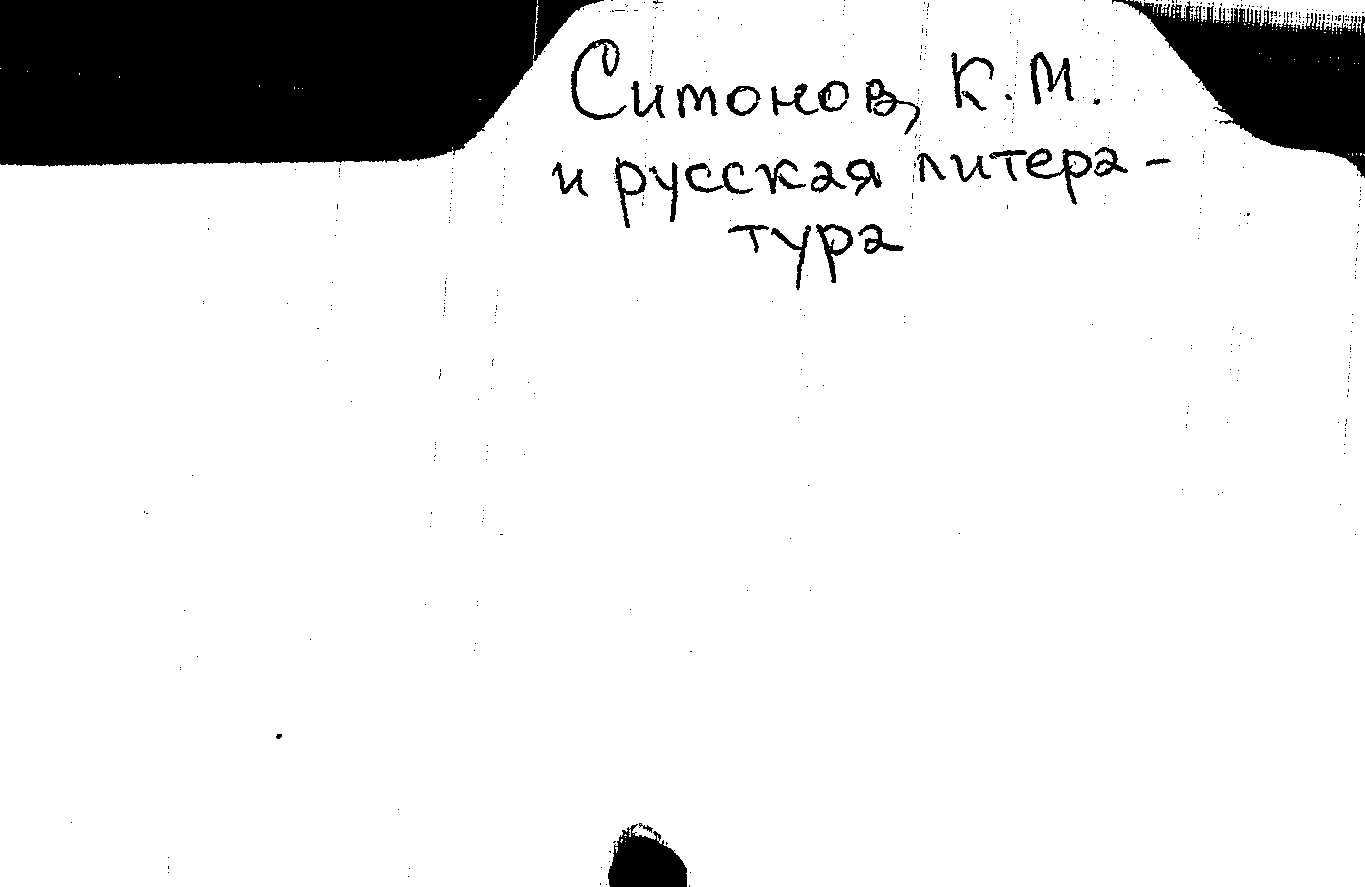 Симонов, К.М.
и русская литера-
тура